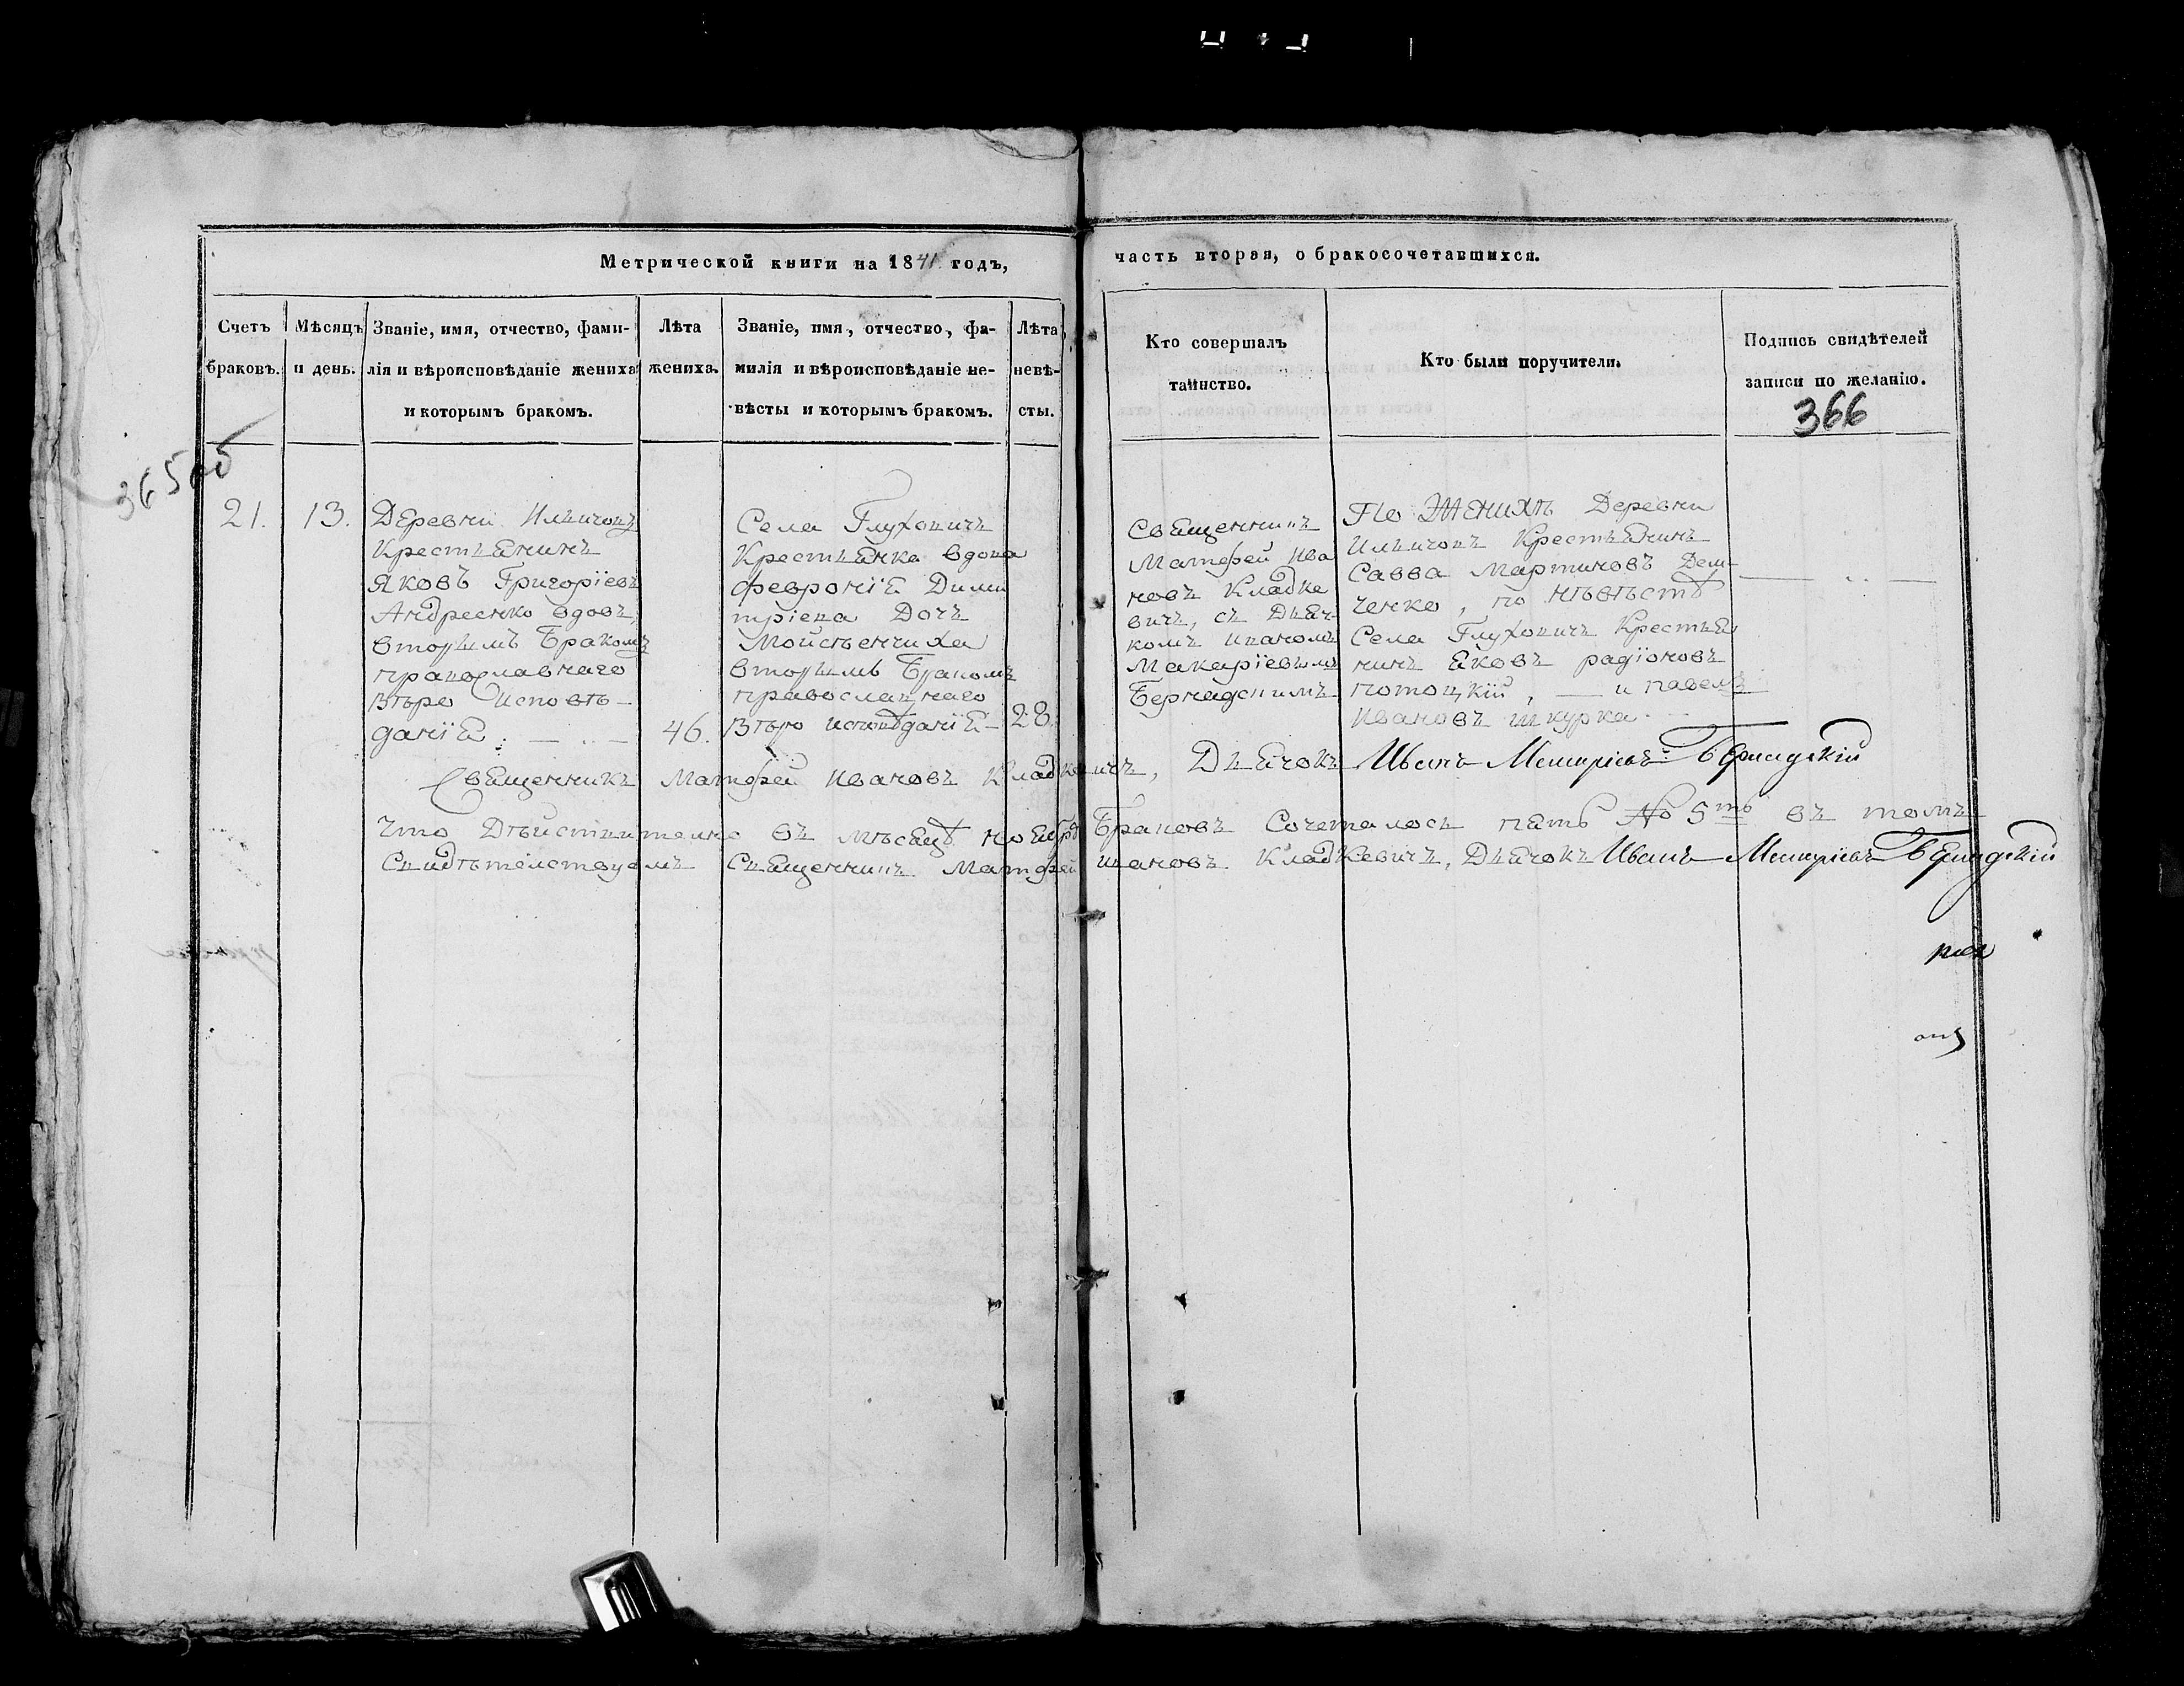 Метрической книги на 1841 годъ,
часть вторая, о бракосочетавшихся.
Счетъ
браковъ.
Мѣсяцъ
и день.
Званіе, имя, отчество, фами-
лія и вѣроисповѣданіе жениха
и которымъ бракомъ.
Лѣта
жениха.
Званіе, имя, отчество, фа-
милія и вѣроисповѣданіе не-
вѣсты и которымъ бракомъ.
Лѣта
невѣ-
сты.
Кто совершалъ
таинство.
Кто были поручители.
Подпись свидѣтелей
записи по желанію.
366
365об
21.
13.
Деревни Ильичовъ
Крестьянинъ
Яковъ Григоріевъ
Андреенко вдовъ,
вторымъ Бракомъ
православнаго
Вѣро Исповѣ-
данія
46.
Села Глуховичъ
Крестьянка вдова
Февронія Дими
тріева Дочъ
Мойсѣенчиха
вторымъ Бракомъ
православнаго
Вѣро исповѣданія
28.
Священникъ
Матфей Ива
новъ Кладке
вичъ, съ Дьяч-
комъ Иваномъ
Макаріевымъ
Бернадскимъ
По Женихѣ Деревни
Ильичовъ Крестьянинъ
Савва Мартиновъ Дем-
ченко, по невѣстѣ
Села Глуховичъ Крестья
нинъ Яковъ радіоновъ
потоцкій, — и павелъ
Ивановъ шкурка.
Священникъ Матфей Ивановъ Кладкевичъ, Дьячокъ Иванъ Макаріевъ Бернадскій
Что Дѣйствително въ мѣсяцѣ ноябрѣ Браковъ Сочеталось пять № 5ть въ томъ
Свидѣтелствуемъ Священникъ Матфей ивановъ Кладкевичъ, Дьячокъ Иванъ Макаріевъ Бернадскій